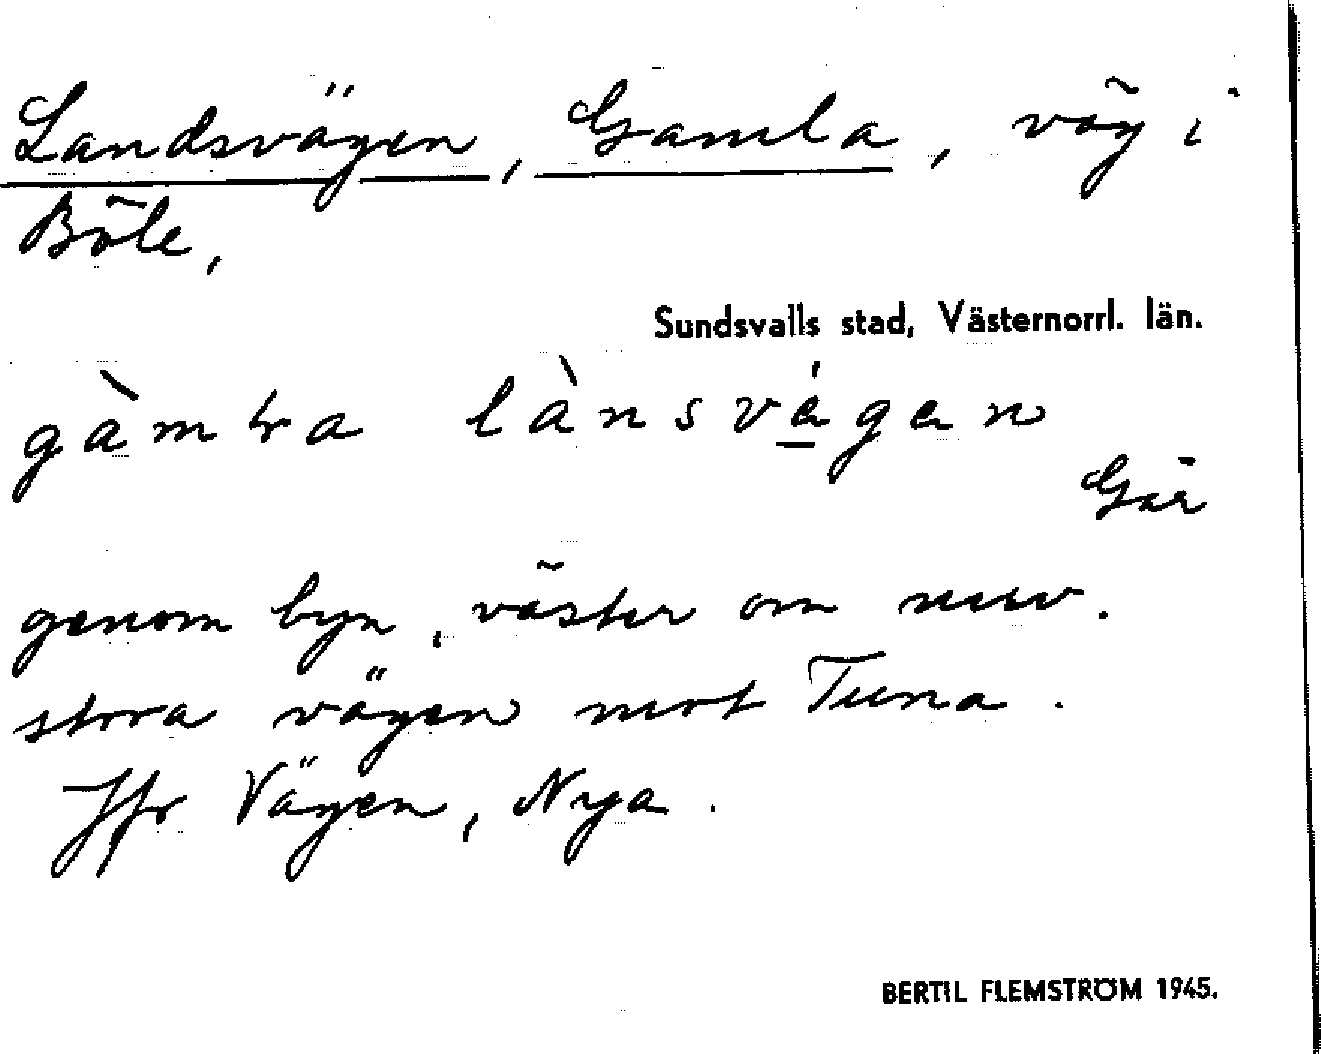 Landsvägen, Gamla, väg i
Böle,
Sundsvalls stad, Västernorrl. län.
länsvägen
Går
genom byn, väster om nuv.
stora vägen mot Tuna.
Jfr Vägen, Nya.
BERTIL FLEMSTRÖM 1945.